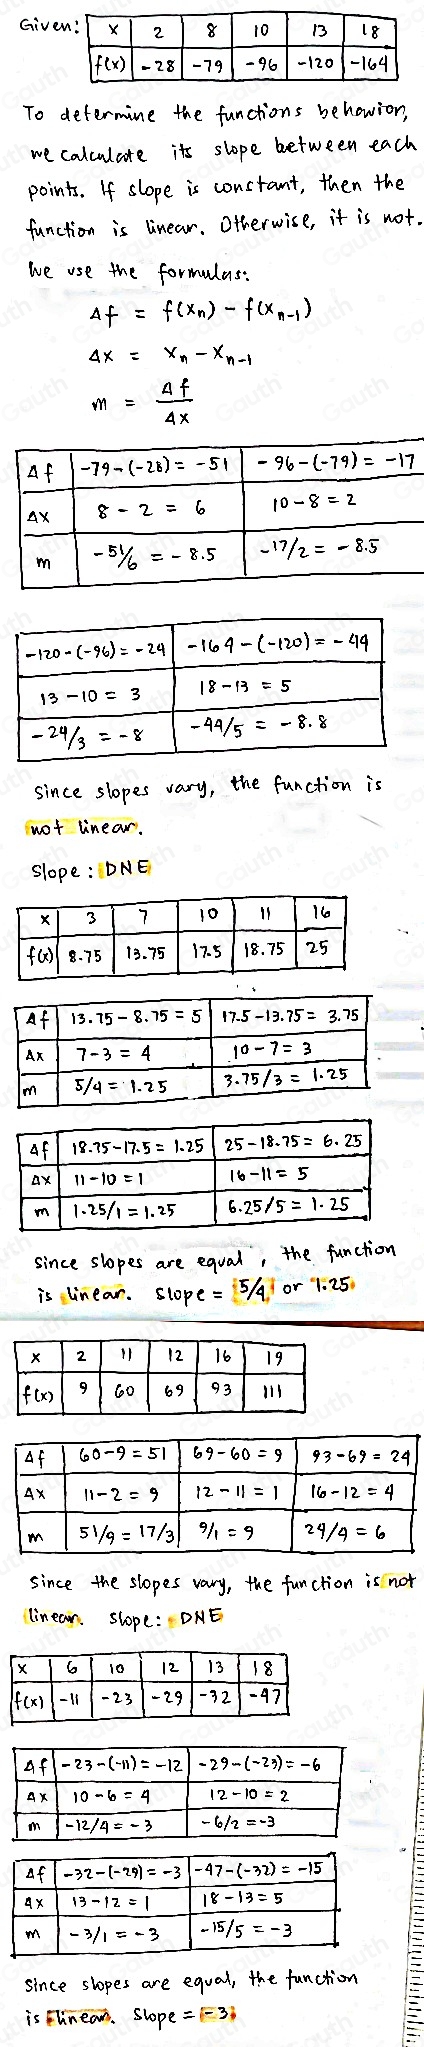 Given:
x 2 8 10 13 18
f(x) -28 -79 -96 -120 -164
To determine the functions behavior,
we calculate its slope between each
points. If slope is constant, then the
function is linear. Otherwise, it is not.
We use the formulas:
Δf = f(xn) - f(xn-1)
Δx = xn - xn-1
m = Δf/Δx
Δf -79-(-28) = -51 -96-(-79) = -17
Δx 8-2 = 6 10-8 = 2
m -51/6 = -8.5 -17/2 = -8.5
-120-(-96) = -24 -164-(-120) = -44
13-10 = 3 18-13 = 5
-24/3 = -8 -44/5 = -8.8
Since slopes vary, the function is
not linear.
Slope: DNE
x 3 7 10 11 16
f(x) 8.75 13.75 17.5 18.75 25
Δf 13.75-8.75 = 5 17.5-13.75 = 3.75
Δx 7-3 = 4 10-7 = 3
m 5/4 = 1.25 3.75/3 = 1.25
Δf 18.75-17.5 = 1.25 25-18.75 = 6.25
Δx 11-10 = 1 16-11 = 5
m 1.25/1 = 1.25 6.25/5 = 1.25
Since slopes are equal, the function
is linear. Slope = 5/4 or 1.25
x 2 11 12 16 19
f(x) 9 60 69 93 111
Δf 60-9 = 51 69-60 = 9 93-69 = 24
Δx 11-2 = 9 12-11 = 1 16-12 = 4
m 51/9 = 17/3 9/1 = 9 24/4 = 6
Since the slopes vary, the function is not
linear. Slope: DNE
x 6 10 12 13 18
f(x) -11 -23 -29 -32 -47
Δf -23-(-11) = -12 -29-(-23) = -6
Δx 10-6 = 4 12-10 = 2
m -12/4 = -3 -6/2 = -3
Δf -32-(-29) = -3 -47-(-32) = -15
Δx 13-12 = 1 18-13 = 5
m -3/1 = -3 -15/5 = -3
Since slopes are equal, the function
is linear. Slope = -3